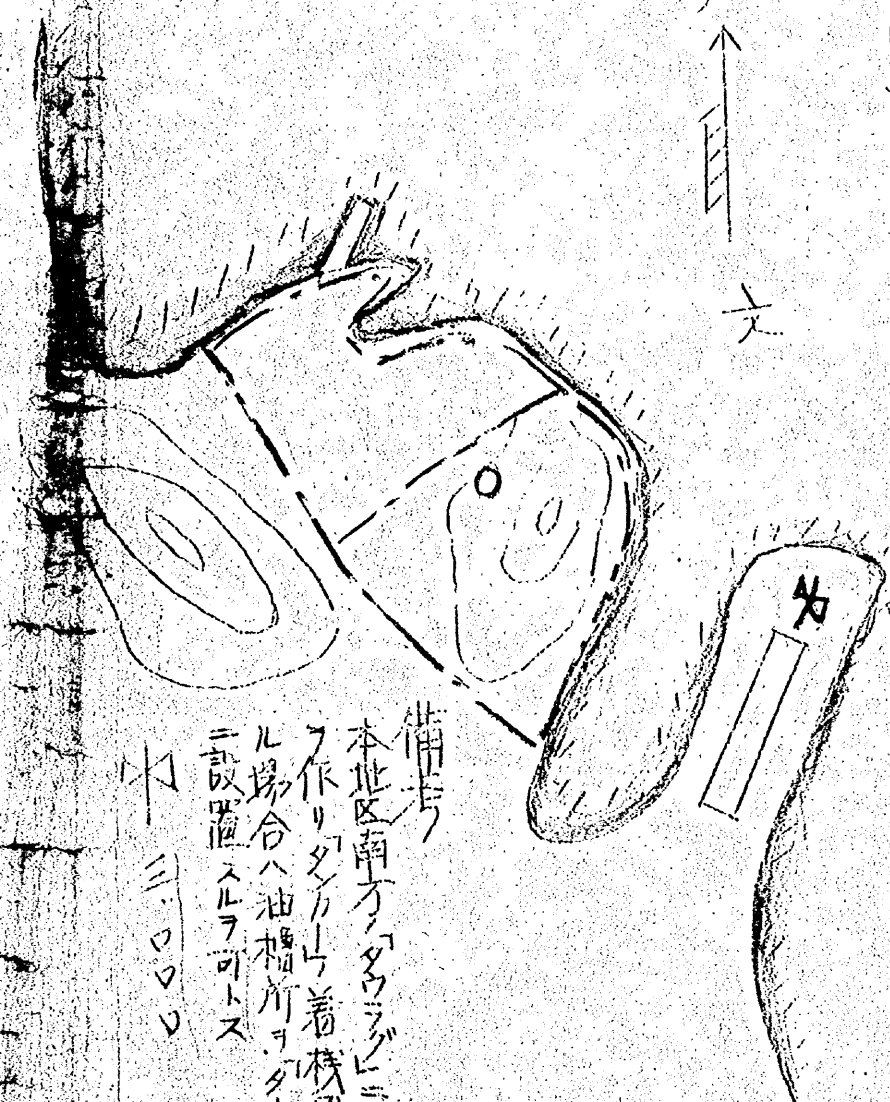 備考
本地区南方ノ「タウラグ」ニ
ヲ作リ「タンカー」ヲ着桟
ル場合ハ油槽所ヲ「タ
ニ設置スルヲ可トス